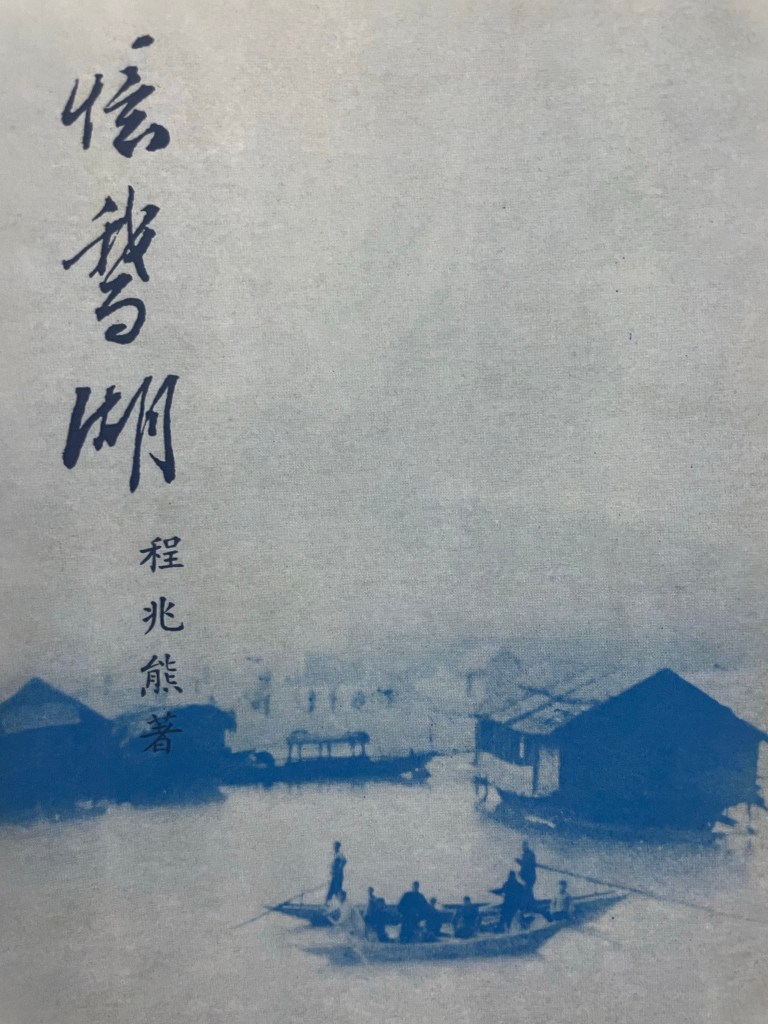 憶鵝湖
程兆熊著